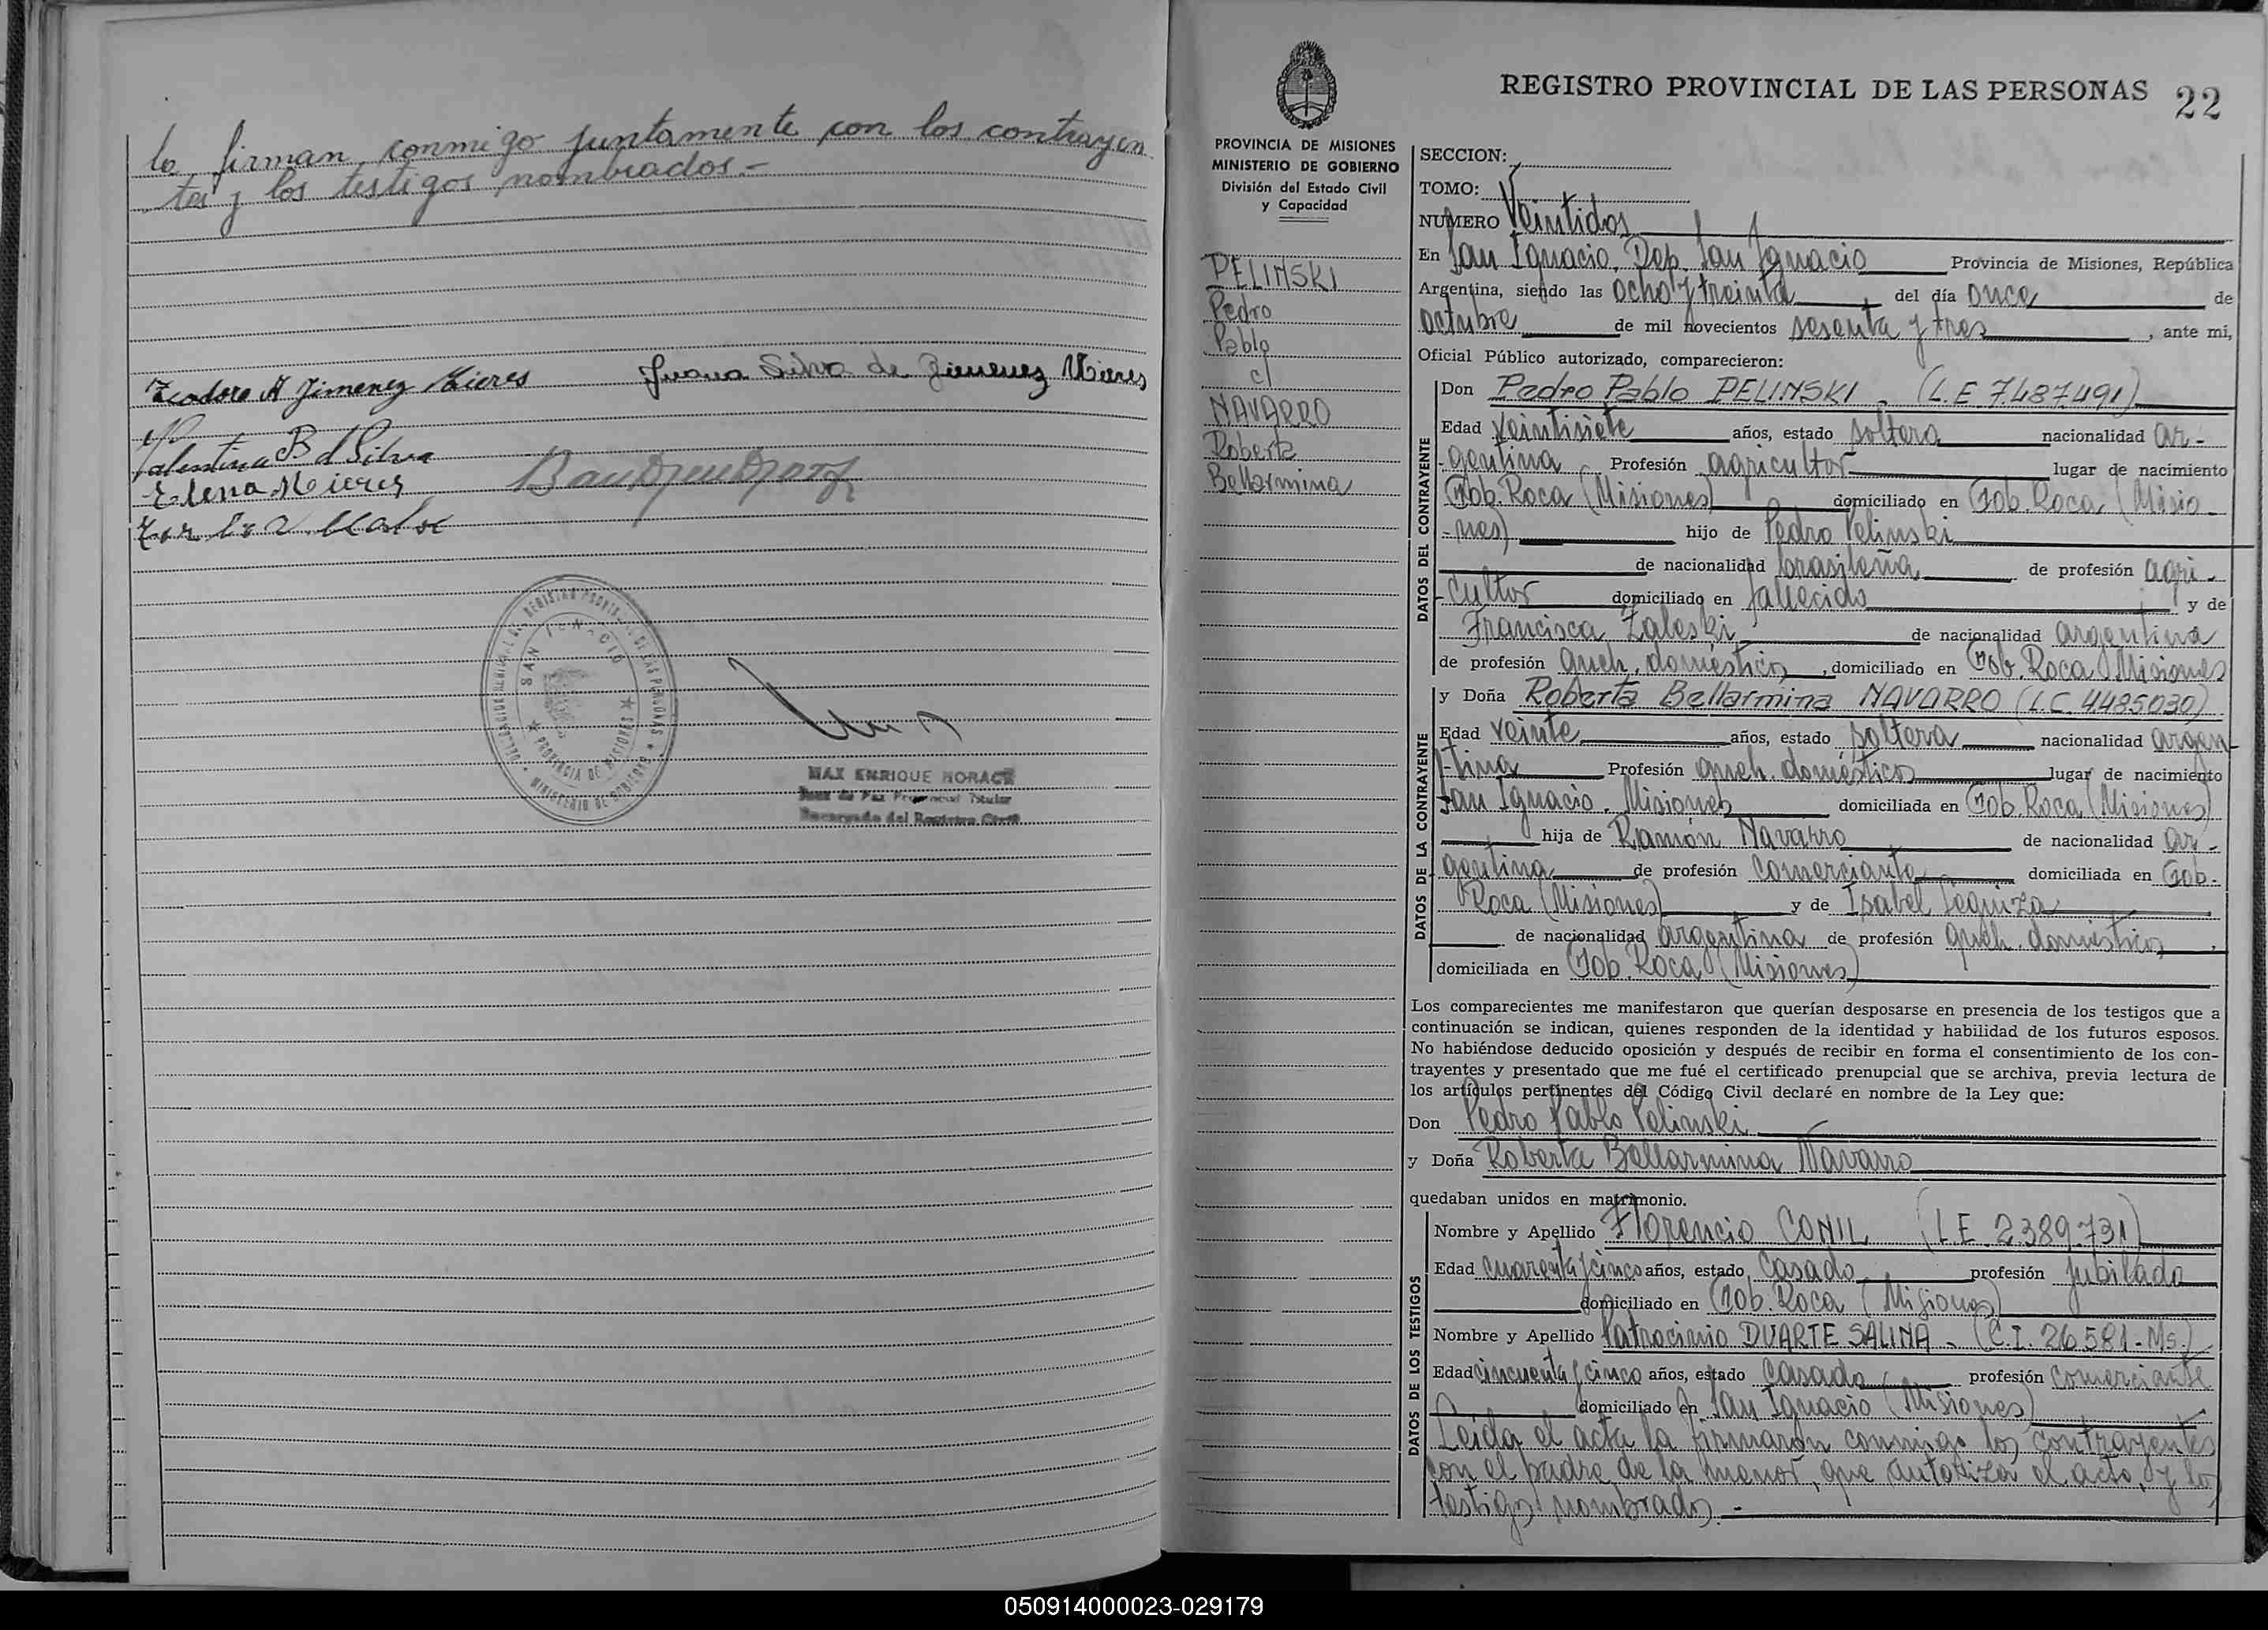 la firman conmigo juntamente con los contrayen
tes y los testigos nombrados.-
Teodoro A Jimenez Mieres
Juana Silva de Jimenez Mieres
Valentina B d Silva
Elena Mieres
SAN IGNACIO
PROVINCIA DE MISIONES
MINISTERIO DE GOBIERNO
MAX ENRIQUE HORACE
Juez de Paz Provincial Titular
Encargado del Registro Civil
REGISTRO PROVINCIAL DE LAS PERSONAS 22
PROVINCIA DE MISIONES
MINISTERIO DE GOBIERNO
División del Estado Civil
y Capacidad
PELINSKI
Pedro
Pablo
c/
NAVARRO
Roberta
Bellarmina
SECCION:
TOMO:
NUMERO Veintidos
En San Ignacio, Dep. San Ignacio Provincia de Misiones, República
Argentina, siendo las ocho y treinta del día once de
octubre de mil novecientos sesenta y tres, ante mi,
Oficial Público autorizado, comparecieron:
DATOS DEL CONTRAYENTE
Don Pedro Pablo PELINSKI - (L.E. 7.487.491)
Edad veintisiete años, estado soltero nacionalidad ar-
gentina Profesión agricultor lugar de nacimiento
Gob. Roca (Misiones) domiciliado en Gob. Roca (Misio-
-nes) hijo de Pedro Pelinski
de nacionalidad brasileña de profesión agri-
-cultor domiciliado en fallecido y de
Francisca Zaleski de nacionalidad argentina
de profesión queh. domésticos, domiciliado en Gob. Roca Misiones
DATOS DE LA CONTRAYENTE
y Doña Roberta Bellarmina NAVARRO (L.C. 4485030)
Edad veinte años, estado soltera nacionalidad argen-
-tina Profesión queh. domésticos lugar de nacimiento
San Ignacio. Misiones domiciliada en Gob. Roca (Misiones)
hija de Ramón Navarro de nacionalidad ar-
gentina de profesión comerciante domiciliada en Gob.
Roca (Misiones) y de Isabel Sequiza
de nacionalidad argentina de profesión queh. domésticos,
domiciliada en Gob. Roca (Misiones)
Los comparecientes me manifestaron que querían desposarse en presencia de los testigos que a
continuación se indican, quienes responden de la identidad y habilidad de los futuros esposos.
No habiéndose deducido oposición y después de recibir en forma el consentimiento de los con-
trayentes y presentado que me fué el certificado prenupcial que se archiva, previa lectura de
los artículos pertinentes del Código Civil declaré en nombre de la Ley que:
Don Pedro Pablo Pelinski
y Doña Roberta Bellarmina Navarro
quedaban unidos en matrimonio.
DATOS DE LOS TESTIGOS
Nombre y Apellido Florencio CONIL (L.E. 2.389.731)
Edad cuarenta y cinco años, estado casado profesión jubilado
domiciliado en Gob. Roca (Misiones)
Nombre y Apellido Patrocinio DUARTE SALINA - (C.I. 26.581-Ms.)
Edad cincuenta y cinco años, estado casado profesión comerciante
domiciliado en San Ignacio (Misiones)
Leída el acta la firmaron conmigo los contrayentes
con el padre de la menor, que autoriza el acto, y los
testigos nombrados.-
050914000023-029179